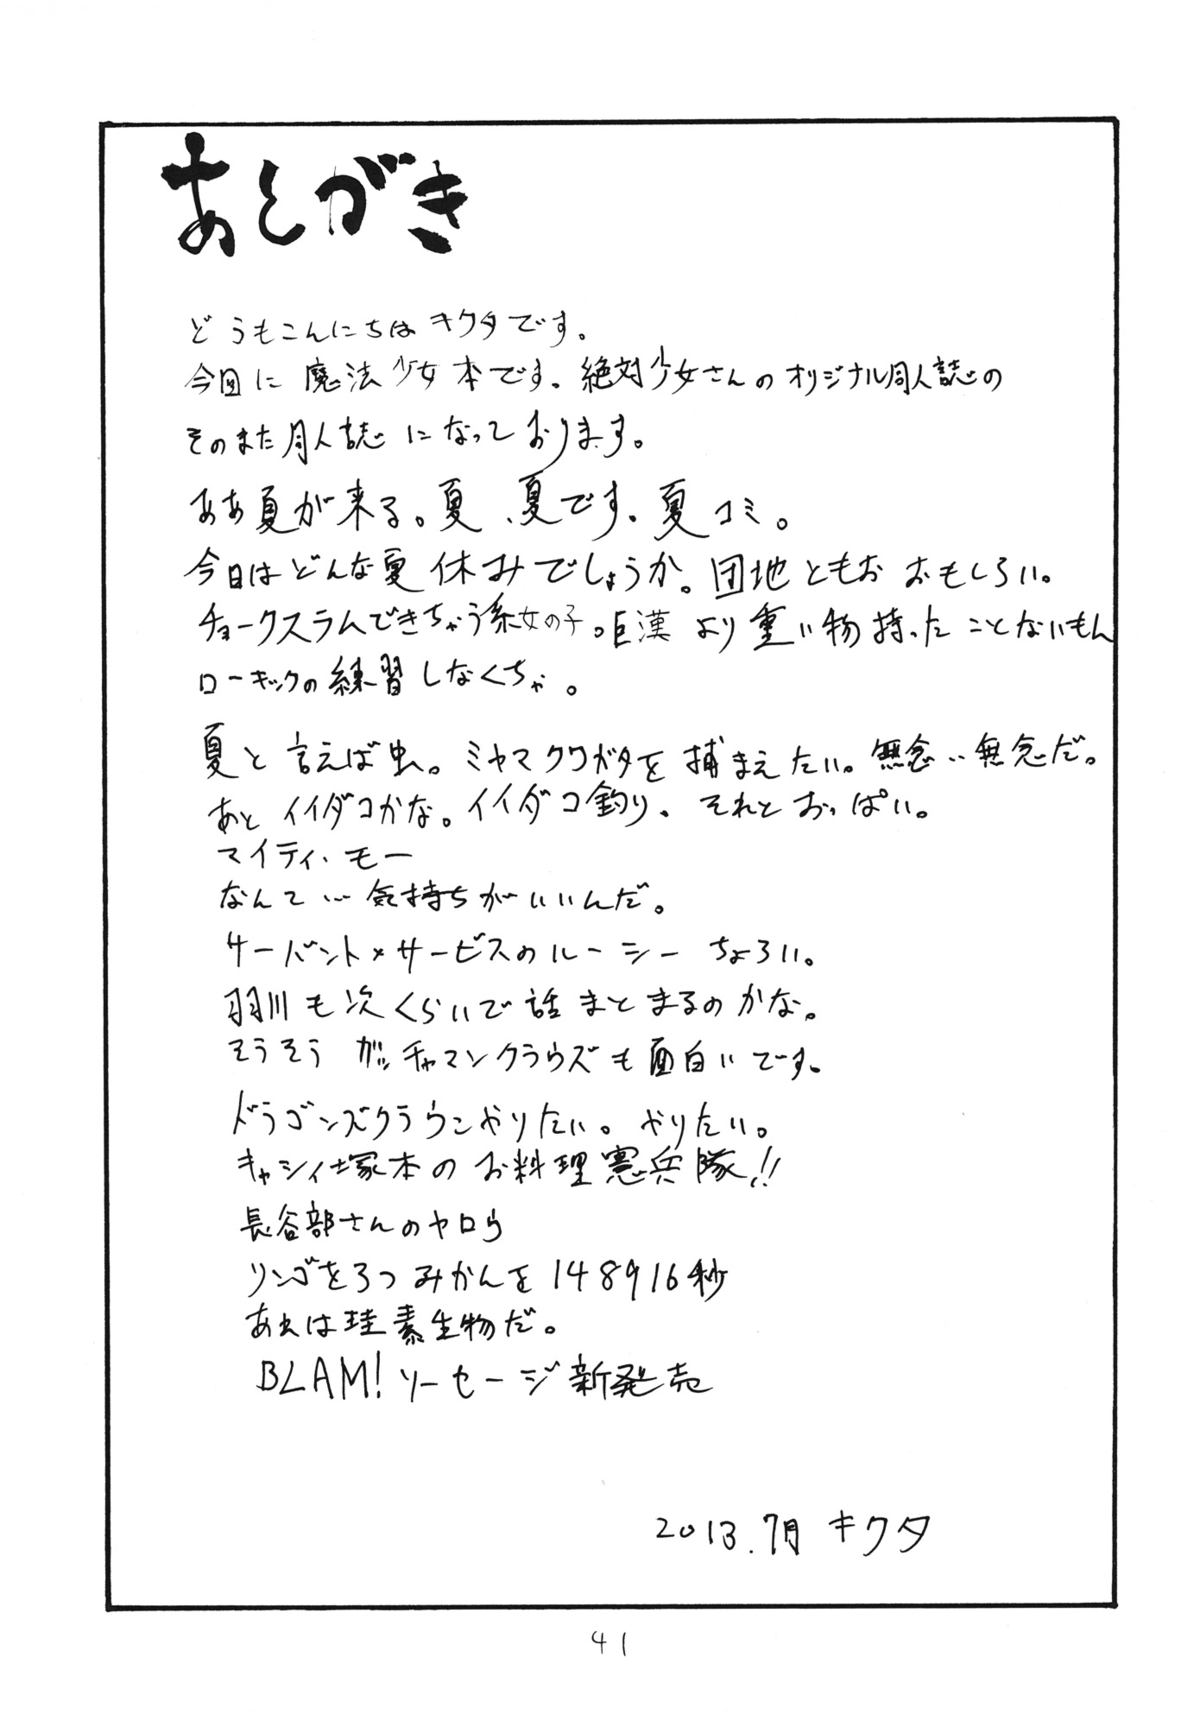 あとがき
どうもこんにちはキクタです。
今回に魔法少女本です。絶対少女さんのオリジナル同人誌の
そのまた同人誌になっております。
ああ夏が来る。夏、夏です。夏コミ。
今日はどんな夏休みでしょうか。団地ともお おもしろい。
チョークスラムできちゃう系女の子。巨漢より重い物持ったことないもん
ローキックの練習しなくちゃ。
夏と言えば虫。ミヤマクワガタを捕まえたい。無念‥無念だ。
あとイイダコかな。イイダコ釣り、それとおっぱい。
マイティ・モー
なんて…気持ちがいいんだ。
サーバント×サービスのルーシー ちょろい。
羽川も次くらいで話まとまるのかな。
そうそう ガッチャマンクラウズも面白いです。
ドラゴンズクラウンやりたい。やりたい。
キャシィ塚本のお料理憲兵隊!!
長谷部さんのヤロウ
リンゴを3つみかんを148916秒
あぁは珪素生物だ。
BLAM!ソーセージ新発売
2013.7月 キクタ
41